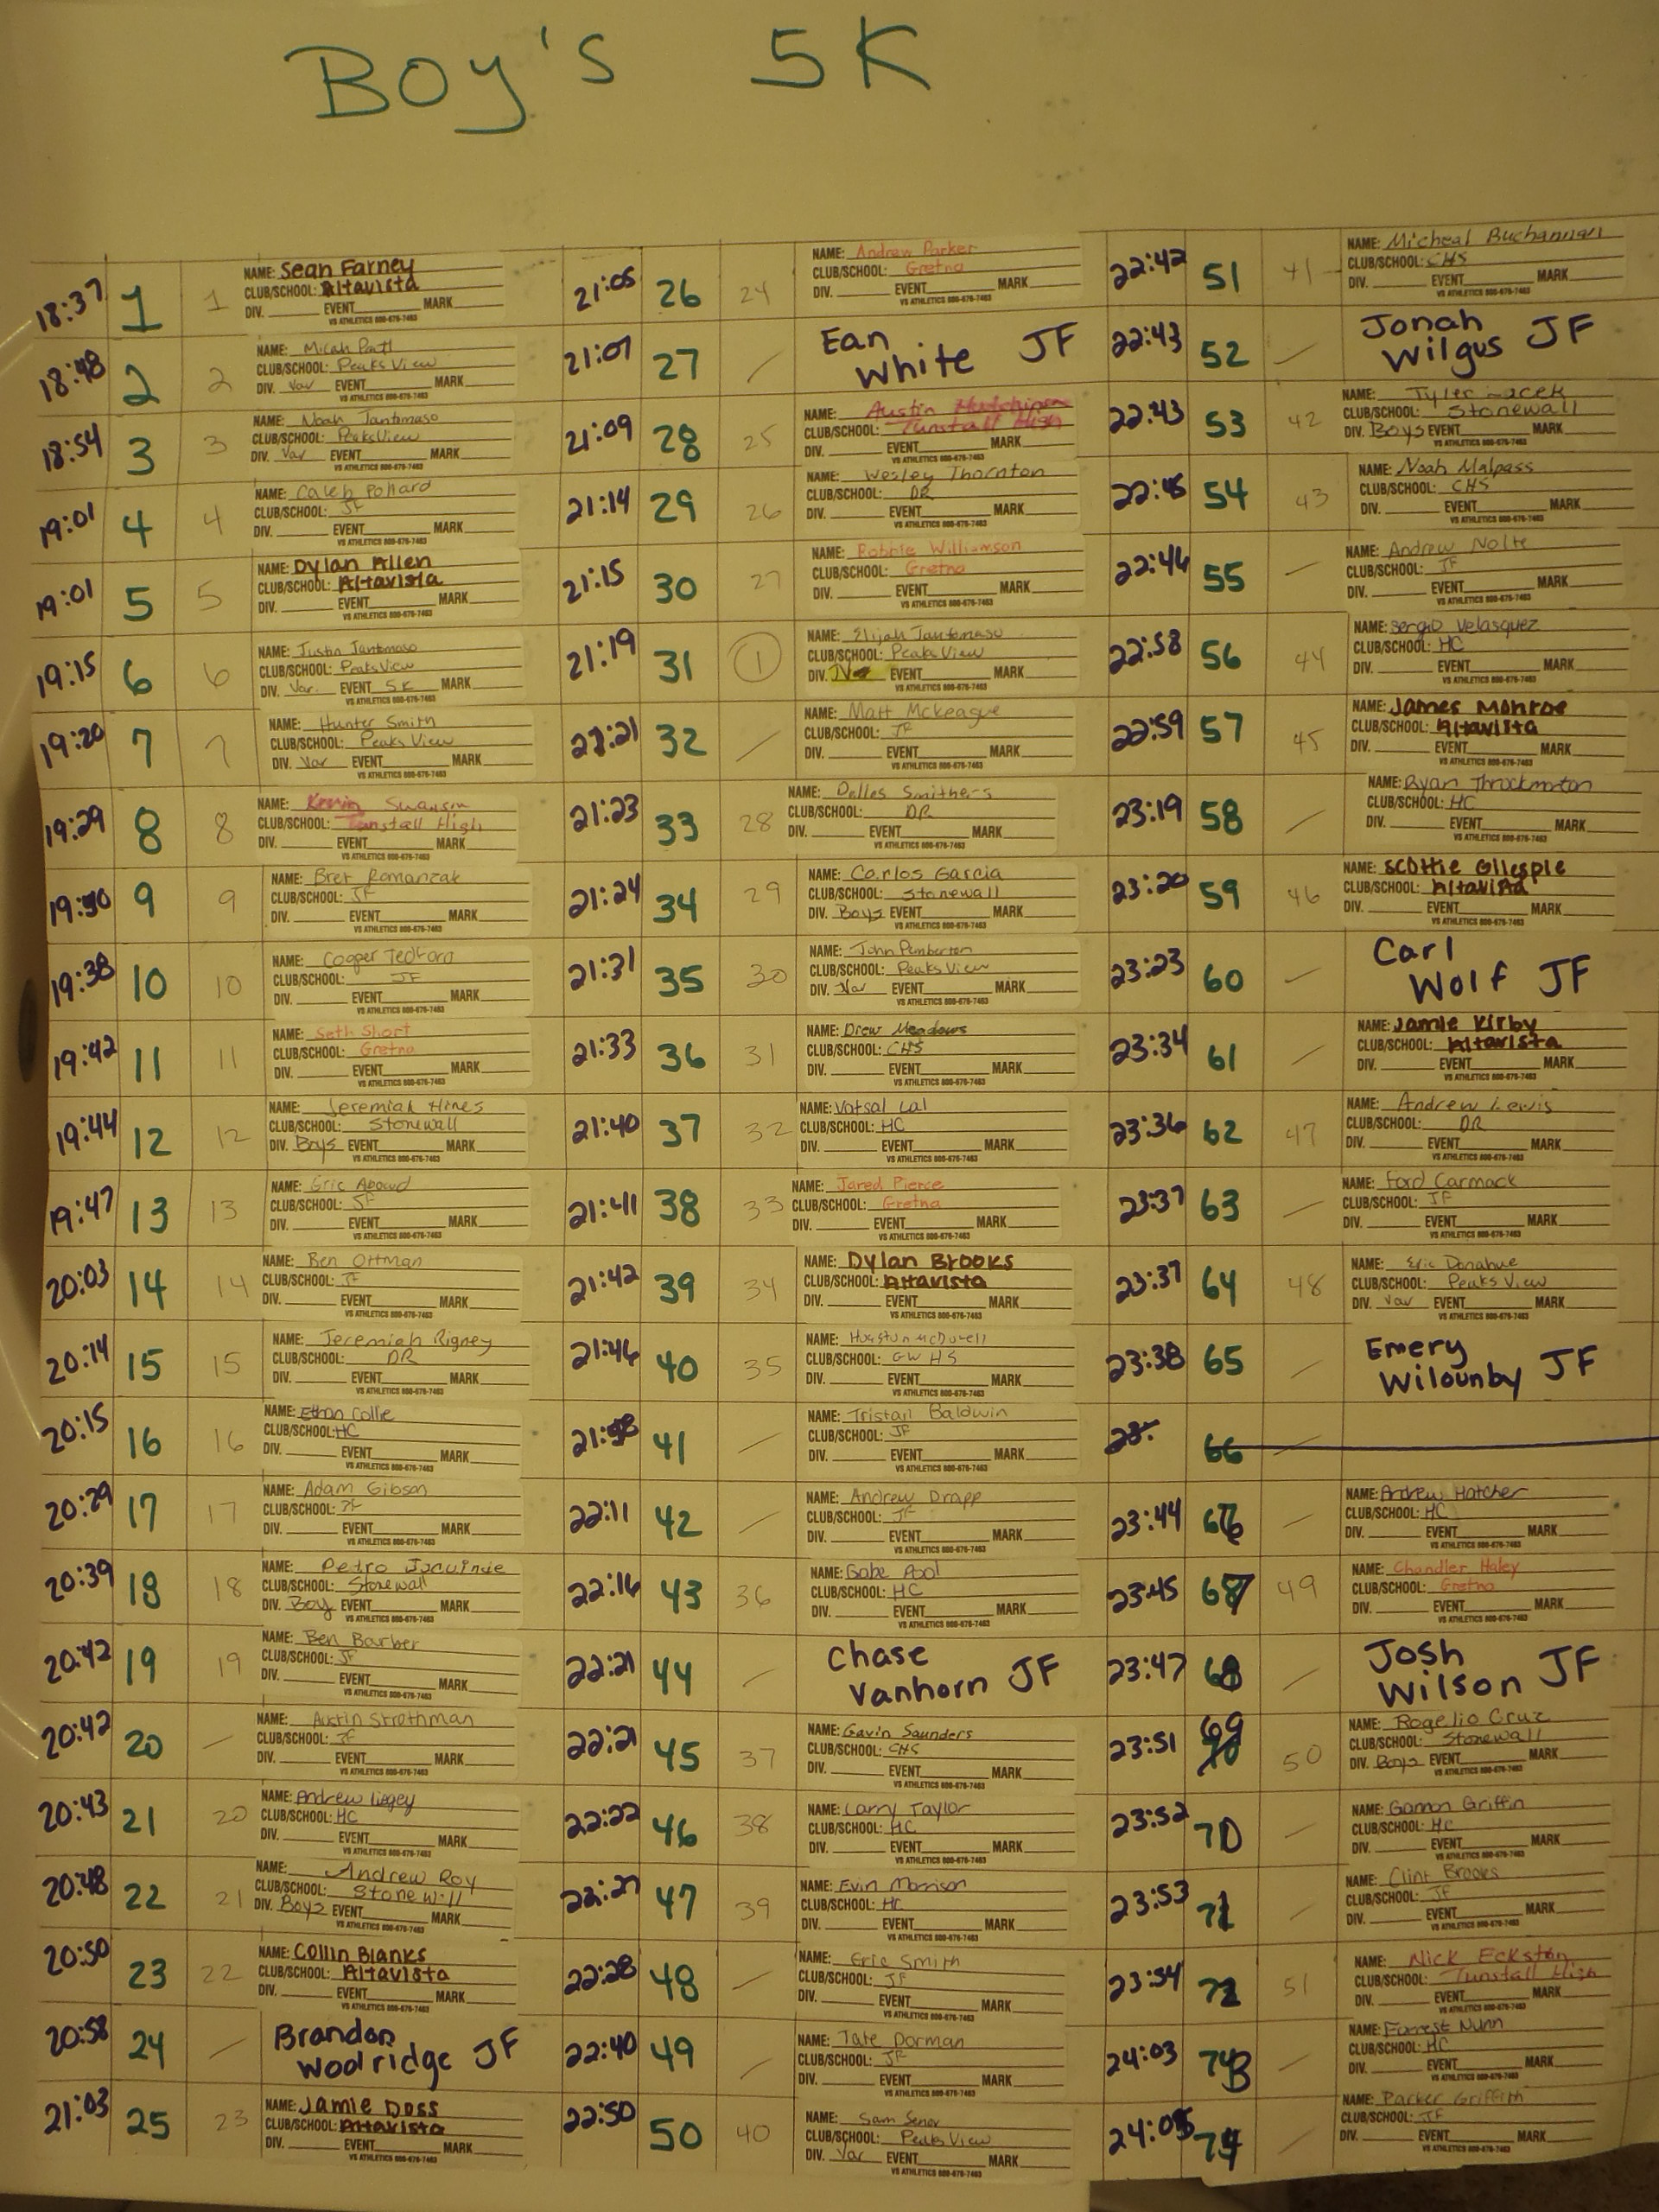 BOY'S 5K
18:37 1 1 NAME: Sean Farney
CLUB/SCHOOL: Altavista
DIV. EVENT MARK
VS ATHLETICS 800-676-7463
18:48 2 2 NAME: Micah
CLUB/SCHOOL: Peaks View
DIV. Var EVENT MARK
VS ATHLETICS 800-676-7463
18:54 3 3 NAME: Noah Jantomaso
CLUB/SCHOOL: Peaks View
DIV. Var EVENT MARK
VS ATHLETICS 800-676-7463
19:01 4 4 NAME: Caleb Pollard
CLUB/SCHOOL: JF
DIV. EVENT MARK
VS ATHLETICS 800-676-7463
19:01 5 5 NAME: Dylan Allen
CLUB/SCHOOL: Altavista
DIV. EVENT MARK
VS ATHLETICS 800-676-7463
19:15 6 6 NAME: Justin Jantomaso
CLUB/SCHOOL: Peaks View
DIV. Var. EVENT 5K MARK
VS ATHLETICS 800-676-7463
19:20 7 7 NAME: Hunter Smith
CLUB/SCHOOL: Peaks View
DIV. Var EVENT MARK
VS ATHLETICS 800-676-7463
19:29 8 8 NAME: Swanson
CLUB/SCHOOL: Tunstall High
DIV. EVENT MARK
VS ATHLETICS 800-676-7463
19:30 9 9 NAME: Bret Romanczak
CLUB/SCHOOL: JF
DIV. EVENT MARK
VS ATHLETICS 800-676-7463
19:38 10 10 NAME: Cooper Tedford
CLUB/SCHOOL: JF
DIV. EVENT MARK
VS ATHLETICS 800-676-7463
19:42 11 11 NAME: Seth Short
CLUB/SCHOOL: Gretna
DIV. EVENT MARK
VS ATHLETICS 800-676-7463
19:44 12 12 NAME: Jeremiah Hines
CLUB/SCHOOL: Stonewall
DIV. Boys EVENT MARK
VS ATHLETICS 800-676-7463
19:47 13 13 NAME: Eric Aboud
CLUB/SCHOOL: JF
DIV. EVENT MARK
VS ATHLETICS 800-676-7463
20:03 14 14 NAME: Ben Ottman
CLUB/SCHOOL: JF
DIV. EVENT MARK
VS ATHLETICS 800-676-7463
20:14 15 15 NAME: Jeremiah Rigney
CLUB/SCHOOL: DR
DIV. EVENT MARK
VS ATHLETICS 800-676-7463
20:15 16 16 NAME: Ethan Collie
CLUB/SCHOOL: HC
DIV. EVENT MARK
VS ATHLETICS 800-676-7463
20:29 17 17 NAME: Adam Gibson
CLUB/SCHOOL: JF
DIV. EVENT MARK
VS ATHLETICS 800-676-7463
20:39 18 18 NAME: Petro
CLUB/SCHOOL: Stonewall
DIV. Boy EVENT MARK
VS ATHLETICS 800-676-7463
20:42 19 19 NAME: Ben Barber
CLUB/SCHOOL: JF
DIV. EVENT MARK
VS ATHLETICS 800-676-7463
20:42 20 NAME: Austin Strothman
CLUB/SCHOOL: JF
DIV. EVENT MARK
VS ATHLETICS 800-676-7463
20:43 21 20 NAME: Andrew
CLUB/SCHOOL: HC
DIV. EVENT MARK
VS ATHLETICS 800-676-7463
20:48 22 21 NAME: Andrew Roy
CLUB/SCHOOL: Stonewill
DIV. Boys EVENT MARK
VS ATHLETICS 800-676-7463
20:50 23 22 NAME: Collin Blanks
CLUB/SCHOOL: Altavista
DIV. EVENT MARK
VS ATHLETICS 800-676-7463
20:58 24 Brandon
Woolridge JF
21:03 25 23 NAME: Jamie Doss
CLUB/SCHOOL: Altavista
DIV. EVENT MARK
VS ATHLETICS 800-676-7463
21:05 26 24 NAME: Andrew Parker
CLUB/SCHOOL: Gretna
DIV. EVENT MARK
VS ATHLETICS 800-676-7463
21:07 27 Ean
White JF
21:09 28 25 NAME: Austin Hutchinson
CLUB/SCHOOL: Tunstall High
DIV. EVENT MARK
VS ATHLETICS 800-676-7463
21:14 29 26 NAME: Wesley Thornton
CLUB/SCHOOL: DR
DIV. EVENT MARK
VS ATHLETICS 800-676-7463
21:15 30 27 NAME: Robbie Williamson
CLUB/SCHOOL: Gretna
DIV. EVENT MARK
VS ATHLETICS 800-676-7463
21:19 31 1 NAME: Elijah Jantomaso
CLUB/SCHOOL: Peaks View
DIV. EVENT MARK
VS ATHLETICS 800-676-7463
21:21 32 NAME: Matt Mckeague
CLUB/SCHOOL: JF
DIV. EVENT MARK
VS ATHLETICS 800-676-7463
21:23 33 28 NAME: Delles Smithers
CLUB/SCHOOL: DR
DIV. EVENT MARK
VS ATHLETICS 800-676-7463
21:24 34 29 NAME: Carlos Garcia
CLUB/SCHOOL: Stonewall
DIV. Boys EVENT MARK
VS ATHLETICS 800-676-7463
21:31 35 30 NAME: John Pemberton
CLUB/SCHOOL: Peaks View
DIV. Var EVENT MARK
VS ATHLETICS 800-676-7463
21:33 36 31 NAME: Drew Meadows
CLUB/SCHOOL: CHS
DIV. EVENT MARK
VS ATHLETICS 800-676-7463
21:40 37 32 NAME: Vatsal Lal
CLUB/SCHOOL: HC
DIV. EVENT MARK
VS ATHLETICS 800-676-7463
21:41 38 33 NAME: Jared Pierce
CLUB/SCHOOL: Gretna
DIV. EVENT MARK
VS ATHLETICS 800-676-7463
21:42 39 34 NAME: Dylan Brooks
CLUB/SCHOOL: Altavista
DIV. EVENT MARK
VS ATHLETICS 800-676-7463
21:46 40 35 NAME: Houston McDowell
CLUB/SCHOOL: GWHS
DIV. EVENT MARK
VS ATHLETICS 800-676-7463
41 NAME: Tristan Baldwin
CLUB/SCHOOL: JF
DIV. EVENT MARK
VS ATHLETICS 800-676-7463
22:11 42 NAME: Andrew Drapp
CLUB/SCHOOL: JF
DIV. EVENT MARK
VS ATHLETICS 800-676-7463
22:16 43 36 NAME: Gabe Pool
CLUB/SCHOOL: HC
DIV. EVENT MARK
VS ATHLETICS 800-676-7463
22:21 44 Chase
Vanhorn JF
22:21 45 37 NAME: Gavin Saunders
CLUB/SCHOOL: CHS
DIV. EVENT MARK
VS ATHLETICS 800-676-7463
22:22 46 38 NAME: Larry Taylor
CLUB/SCHOOL: HC
DIV. EVENT MARK
VS ATHLETICS 800-676-7463
22:27 47 39 NAME: Evin Morrison
CLUB/SCHOOL: HC
DIV. EVENT MARK
VS ATHLETICS 800-676-7463
22:28 48 NAME: Eric Smith
CLUB/SCHOOL: JF
DIV. EVENT MARK
VS ATHLETICS 800-676-7463
22:40 49 NAME: Tate Dorman
CLUB/SCHOOL: JF
DIV. EVENT MARK
VS ATHLETICS 800-676-7463
22:50 50 40 NAME: Sam Senor
CLUB/SCHOOL: Peaks View
DIV. Var EVENT MARK
VS ATHLETICS 800-676-7463
22:42 51 41 NAME: Micheal Buchannan
CLUB/SCHOOL: CHS
DIV. EVENT MARK
VS ATHLETICS 800-676-7463
22:43 52 Jonah
Wilgus JF
22:43 53 42 NAME: Tyler
CLUB/SCHOOL: Stonewall
DIV. Boys EVENT MARK
VS ATHLETICS 800-676-7463
22:45 54 43 NAME: Noah Malpass
CLUB/SCHOOL: CHS
DIV. EVENT MARK
VS ATHLETICS 800-676-7463
22:46 55 NAME: Andrew Nolte
CLUB/SCHOOL: JF
DIV. EVENT MARK
VS ATHLETICS 800-676-7463
22:58 56 44 NAME: Sergio Velasquez
CLUB/SCHOOL: HC
DIV. EVENT MARK
VS ATHLETICS 800-676-7463
22:59 57 45 NAME: James Monroe
CLUB/SCHOOL: Altavista
DIV. EVENT MARK
VS ATHLETICS 800-676-7463
23:19 58 NAME: Ryan Throckmorton
CLUB/SCHOOL: HC
DIV. EVENT MARK
VS ATHLETICS 800-676-7463
23:20 59 46 NAME: Scottie Gillespie
CLUB/SCHOOL: Altavista
DIV. EVENT MARK
VS ATHLETICS 800-676-7463
23:23 60 Carl
Wolf JF
23:34 61 NAME: Jamie Kirby
CLUB/SCHOOL: Altavista
DIV. EVENT MARK
VS ATHLETICS 800-676-7463
23:36 62 47 NAME: Andrew Lewis
CLUB/SCHOOL: DR
DIV. EVENT MARK
VS ATHLETICS 800-676-7463
23:37 63 NAME: Ford Carmack
CLUB/SCHOOL: JF
DIV. EVENT MARK
VS ATHLETICS 800-676-7463
23:37 64 48 NAME: Eric Donahue
CLUB/SCHOOL: Peaks View
DIV. Var EVENT MARK
VS ATHLETICS 800-676-7463
23:38 65 Emery
Wilounby JF
66
23:44 66 NAME: Andrew Hatcher
CLUB/SCHOOL: HC
DIV. EVENT MARK
VS ATHLETICS 800-676-7463
23:45 67 49 NAME: Chandler Haley
CLUB/SCHOOL: Gretna
DIV. EVENT MARK
VS ATHLETICS 800-676-7463
23:47 68 Josh
Wilson JF
23:51 69 50 NAME: Rogelio Cruz
CLUB/SCHOOL: Stonewall
DIV. Boys EVENT MARK
VS ATHLETICS 800-676-7463
23:52 70 NAME: Griffin
CLUB/SCHOOL: HC
DIV. EVENT MARK
VS ATHLETICS 800-676-7463
23:53 71 NAME: Clint Brooks
CLUB/SCHOOL: JF
DIV. EVENT MARK
VS ATHLETICS 800-676-7463
23:54 72 51 NAME: Nick Eckston
CLUB/SCHOOL: Tunstall High
DIV. EVENT MARK
VS ATHLETICS 800-676-7463
24:03 73 NAME: Forrest Nunn
CLUB/SCHOOL: HC
DIV. EVENT MARK
VS ATHLETICS 800-676-7463
24:05 74 NAME: Parker Griffith
CLUB/SCHOOL: JF
DIV. EVENT MARK
VS ATHLETICS 800-676-7463